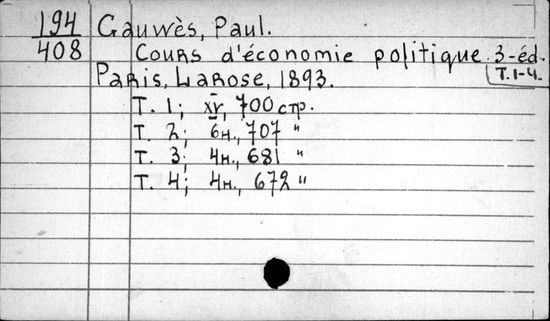 194 Gauwès, Paul.
408 Cours d'économie politique. 3-éd.
Paris, Larose, 1893. T. 1-4.
T. 1; XV, 700 стр.
T. 2; 6н., 707 "
T. 3; 4н., 681 "
T. 4; 4н., 672 "